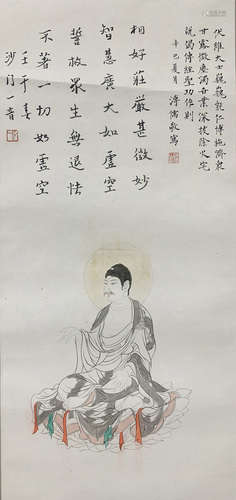 伏維大士巍巍乾仁博施濟衆
甘露微塵渴吾業深拔除火宅
說偈傳經聖功作則
辛巳夏月 溥儒敬寫
相好莊嚴甚微妙
智慧廣大如虛空
誓救眾生無退怯
不著一切如虛空
壬午春
沙門一音